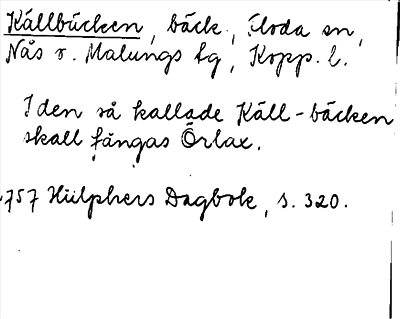 Källbäcken, bäck, Floda sn,
Nås o. Malungs tg, Kopp. l.
I den så kallade Käll-bäcken
skall fångas Örlax.
757 Hülphers Dagbok, s. 320.